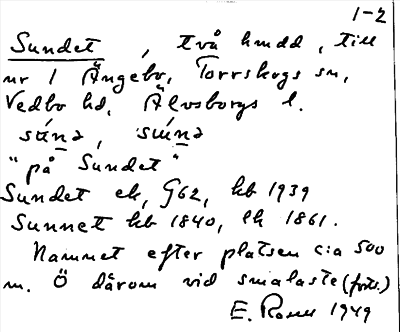 1-2
Sundet, två hmdd, till
nr 1 Ängebo, Torrskogs sn,
Vedbo hd, Älvsborgs l.
"på Sundet"
Sundet ek, G62, kb 1939
Sunnet kb 1840, lk 1861.
Namnet efter platsen c:a 500
m. Ö därom vid smalaste (forts.)
E. 1949